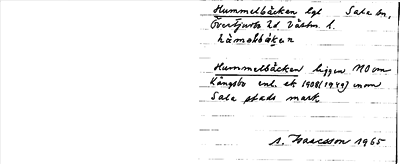 Hummelbäcken bgl Sala sn,
Övertjurbo hd, Västm. l.
häməlsbäkən
Hummelbäcken ligger NO om
Kångsbo enl. ek 1908 (1949) inom
Sala stads mark.
A. Isaacsson 1965